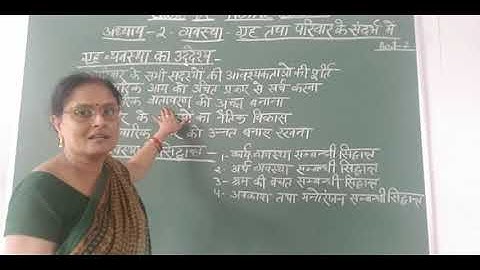 अध्याय - 2 - व्यवस्था - गृह तथा परिवार के संदर्भ में
गृह - व्यवस्था का उद्देश्य -
के सभी सदस्यों की आवश्यकताओं की पूर्ति
आय को उचित प्रकार से खर्च करना
वातावरण को उचित बनाना
के का नैतिक विकास
को उन्नत बनाए रखना
1 - कार्य व्यवस्था सम्बन्धी सिद्धान्त
2 - अर्थ व्यवस्था सम्बन्धी सिद्धान्त
3 - श्रम की बचत सम्बन्धी सिद्धान्त
4 - अवकाश तथा मनोरंजन सम्बन्धी सिद्धान्त